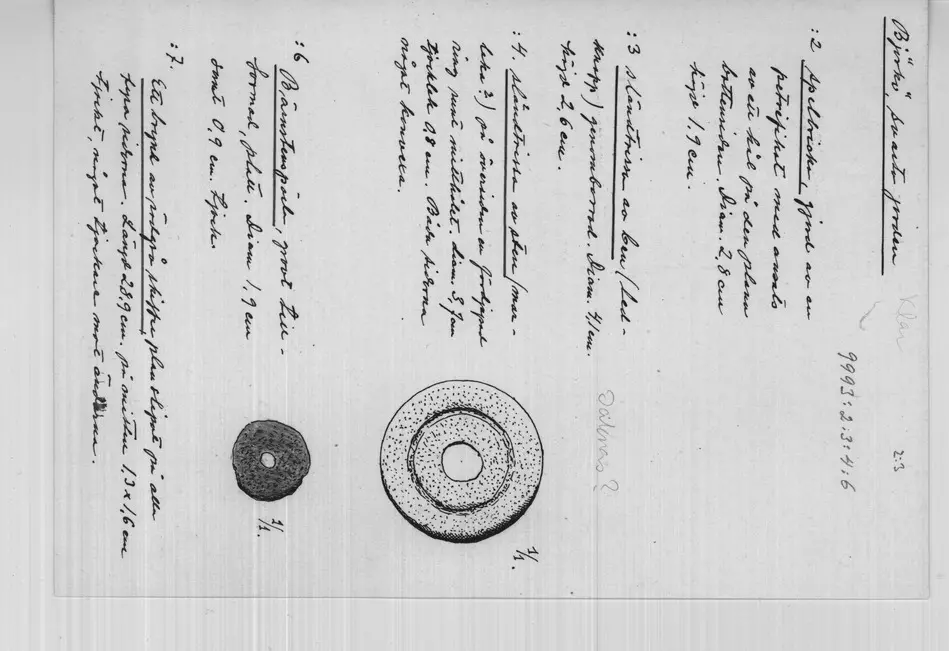 Björkö "svarta jorden"
Klar
2:3
9993:2:3:4:6
:2 Spelbricka, gjord av en
petrifikat med ansats
av ett hål på den plana
bottensidan. Diam. 2,8 cm
höjd 1,9 cm.
:3 sländtrissa av ben (led-
knapp) genomborrad. Diam. 4,1 cm.
höjd 2,6 cm.
:4. sländtrissa av sten (mär-
på översidan en fördjupad
ring runt mitthålet. diam. 3,7 cm
tjocklek 0,8 cm. Båda sidorna
något konvexa.
1/1.
:6 Bärnstenspärla, grovt till-
formad, platt. Diam 1,9 cm
samt 0,9 cm. tjock.
1/1.
:7. Ett bryne av rödgrå skiffer plan slipat på alla
fyra sidorna. Längd 28,9 cm. på mitten 1,3 x 1,6 cm
tjockt, något tjockare mot ändarna.